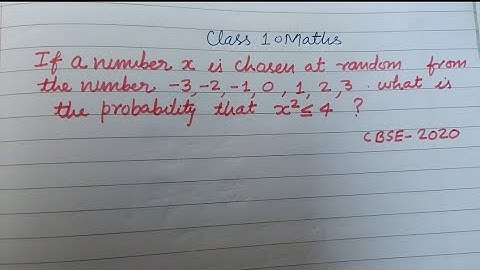 Class 10 Maths
If a number x is chosen at random from
the number -3, -2, -1, 0, 1, 2, 3. what is
the probability that x² ≤ 4 ?
CBSE-2020